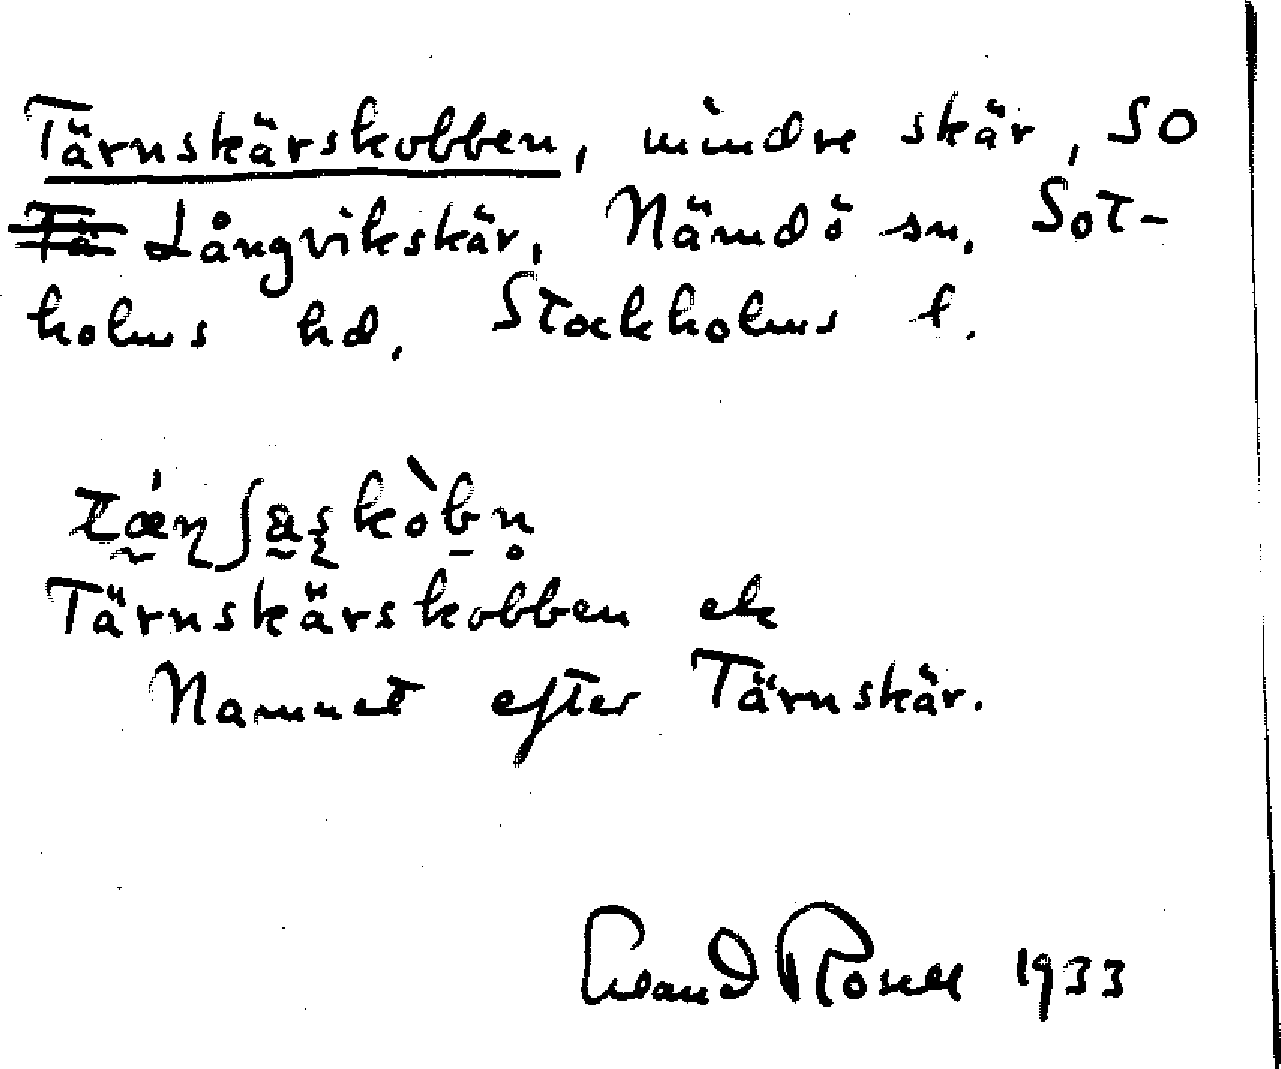 Tärnskärskobben, mindre skär, SO
Tä Långvikskär, Nämdö sn, Sot-
holms hd, Stockholms l.
Tärnskärskobben ek
Namnet efter Tärnskär.
Erland Rosell 1933